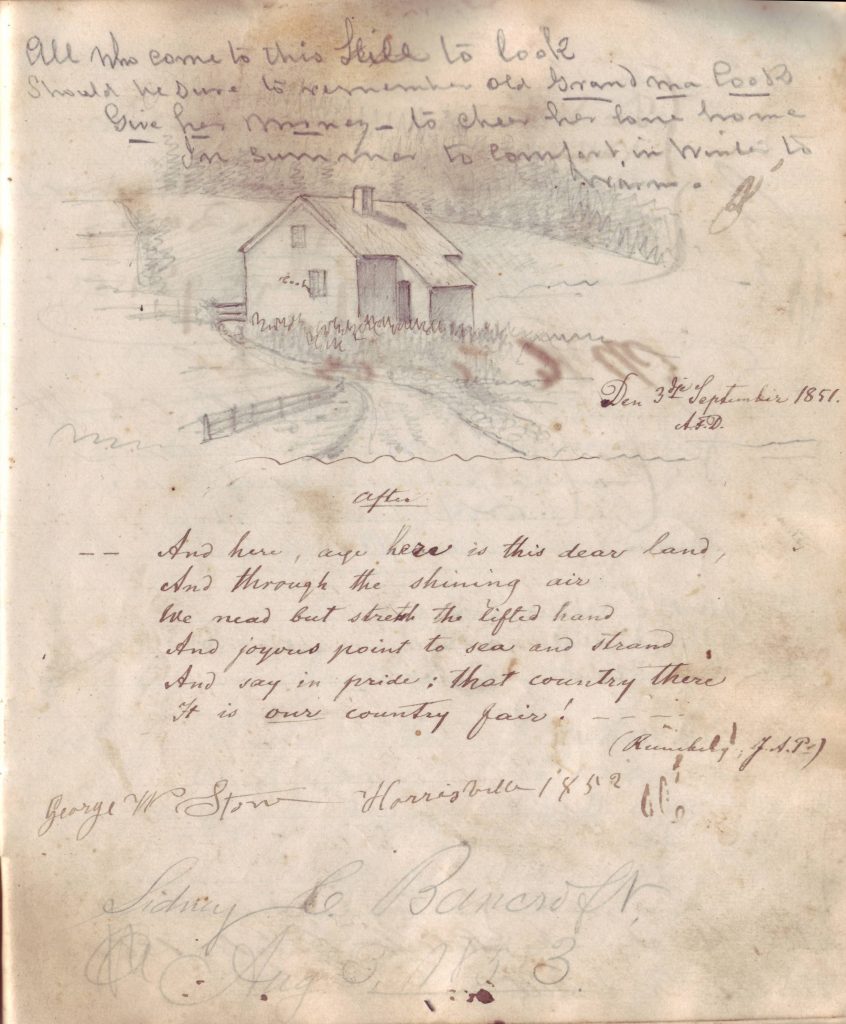 All who come to this Hill to look
Should be sure to remember old Grand ma Cook
Give her money - to cheer her lone home
In summer to comfort, in Winter to
warm.
Cook
Den 3die September 1851.
A.F.D.
After
-- And here, aye here is this dear land,
And through the shining air
We nead but stretch the lifted hand
And joyous point to sea and strand
And say in pride: that country there
It is our country fair! - - - -
George W Stow Harrisville 1852
Sidney C. Bancroft.
Aug 3, 1853.